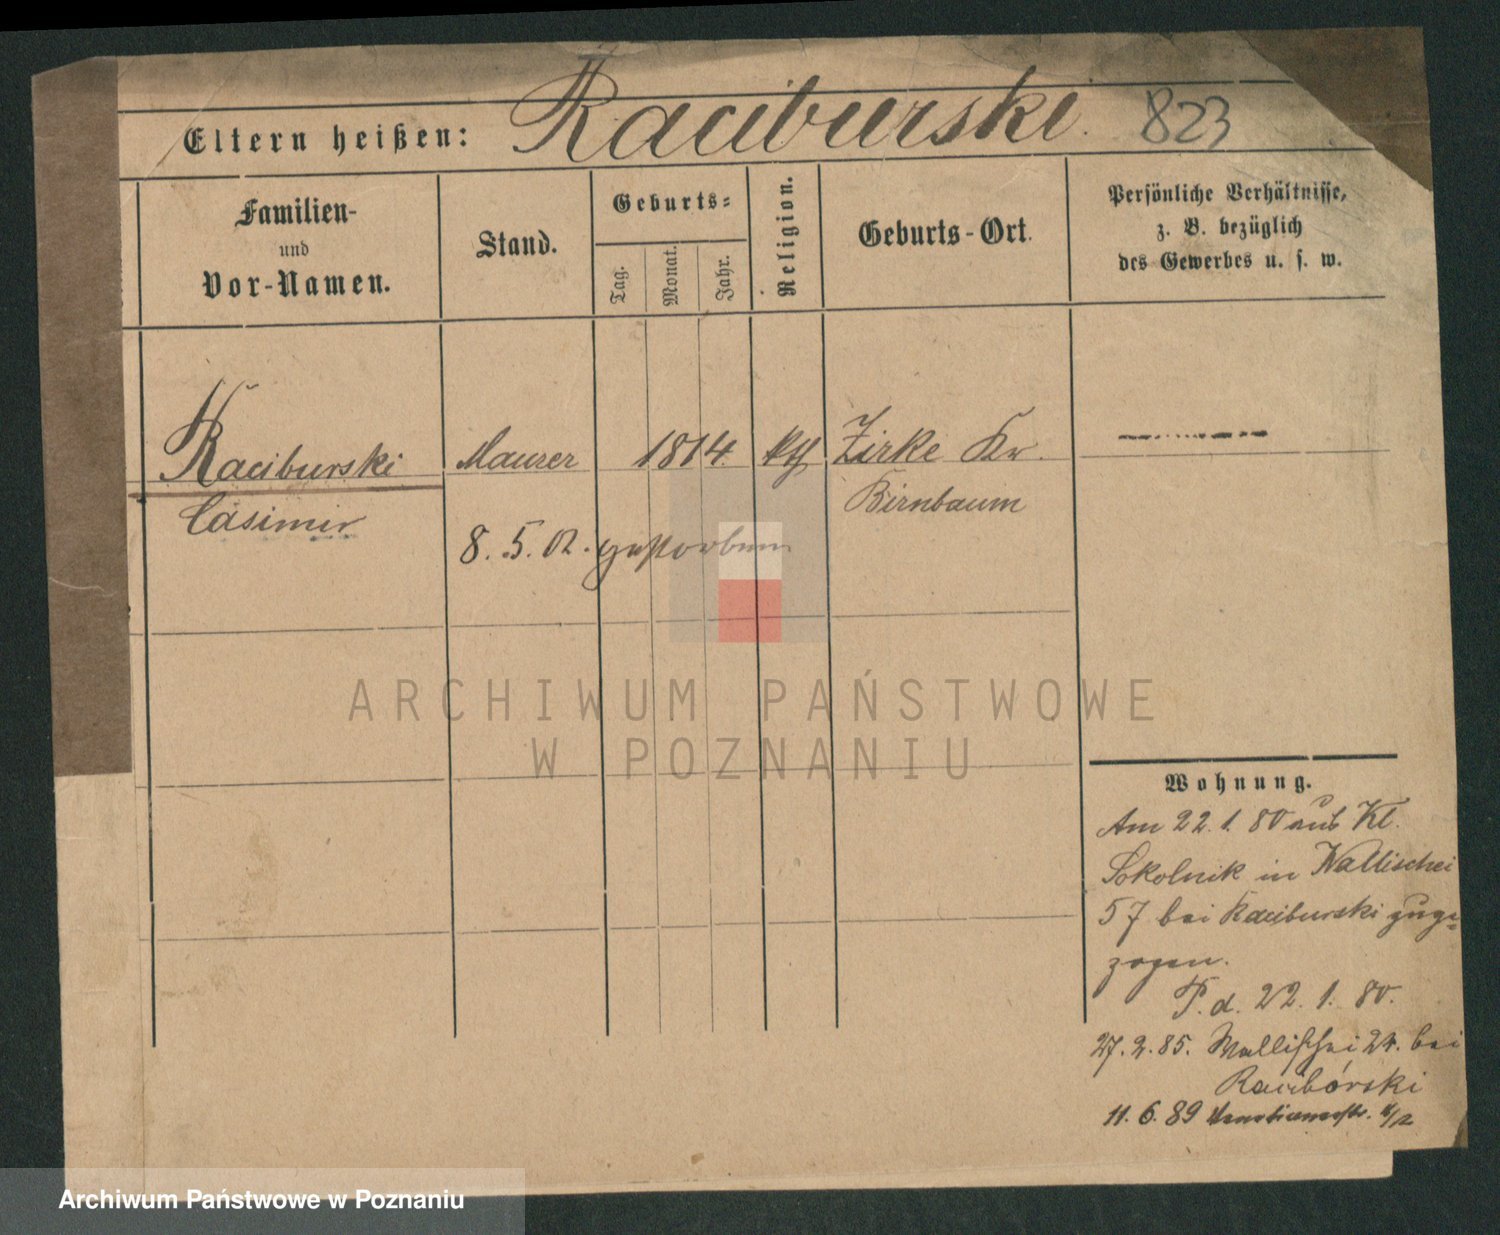 Eltern heißen: Raciburski. 823
Familien-
und
Vor-Namen.
Stand.
Geburts-
Tag.
Monat.
Jahr.
Religion.
Geburts-Ort.
Persönliche Verhältnisse,
z. B. bezüglich
des Gewerbes u. s. w.
Raciburski Maurer 1814. kth Zirke Kr.
Casimir Birnbaum
8. 5. 02. gestorben
ARCHIWUM PAŃSTWOWE
W POZNANIU
Wohnung.
Am 22. 1. 80 aus Kl.
Sokolnik in Wallischei
57 bei Raciburski zuge-
zogen.
P. d. 22. 1. 80.
27. 2. 85. Wallischei 24. bei
Racibórski
11. 6. 89
Archiwum Państwowe w Poznaniu